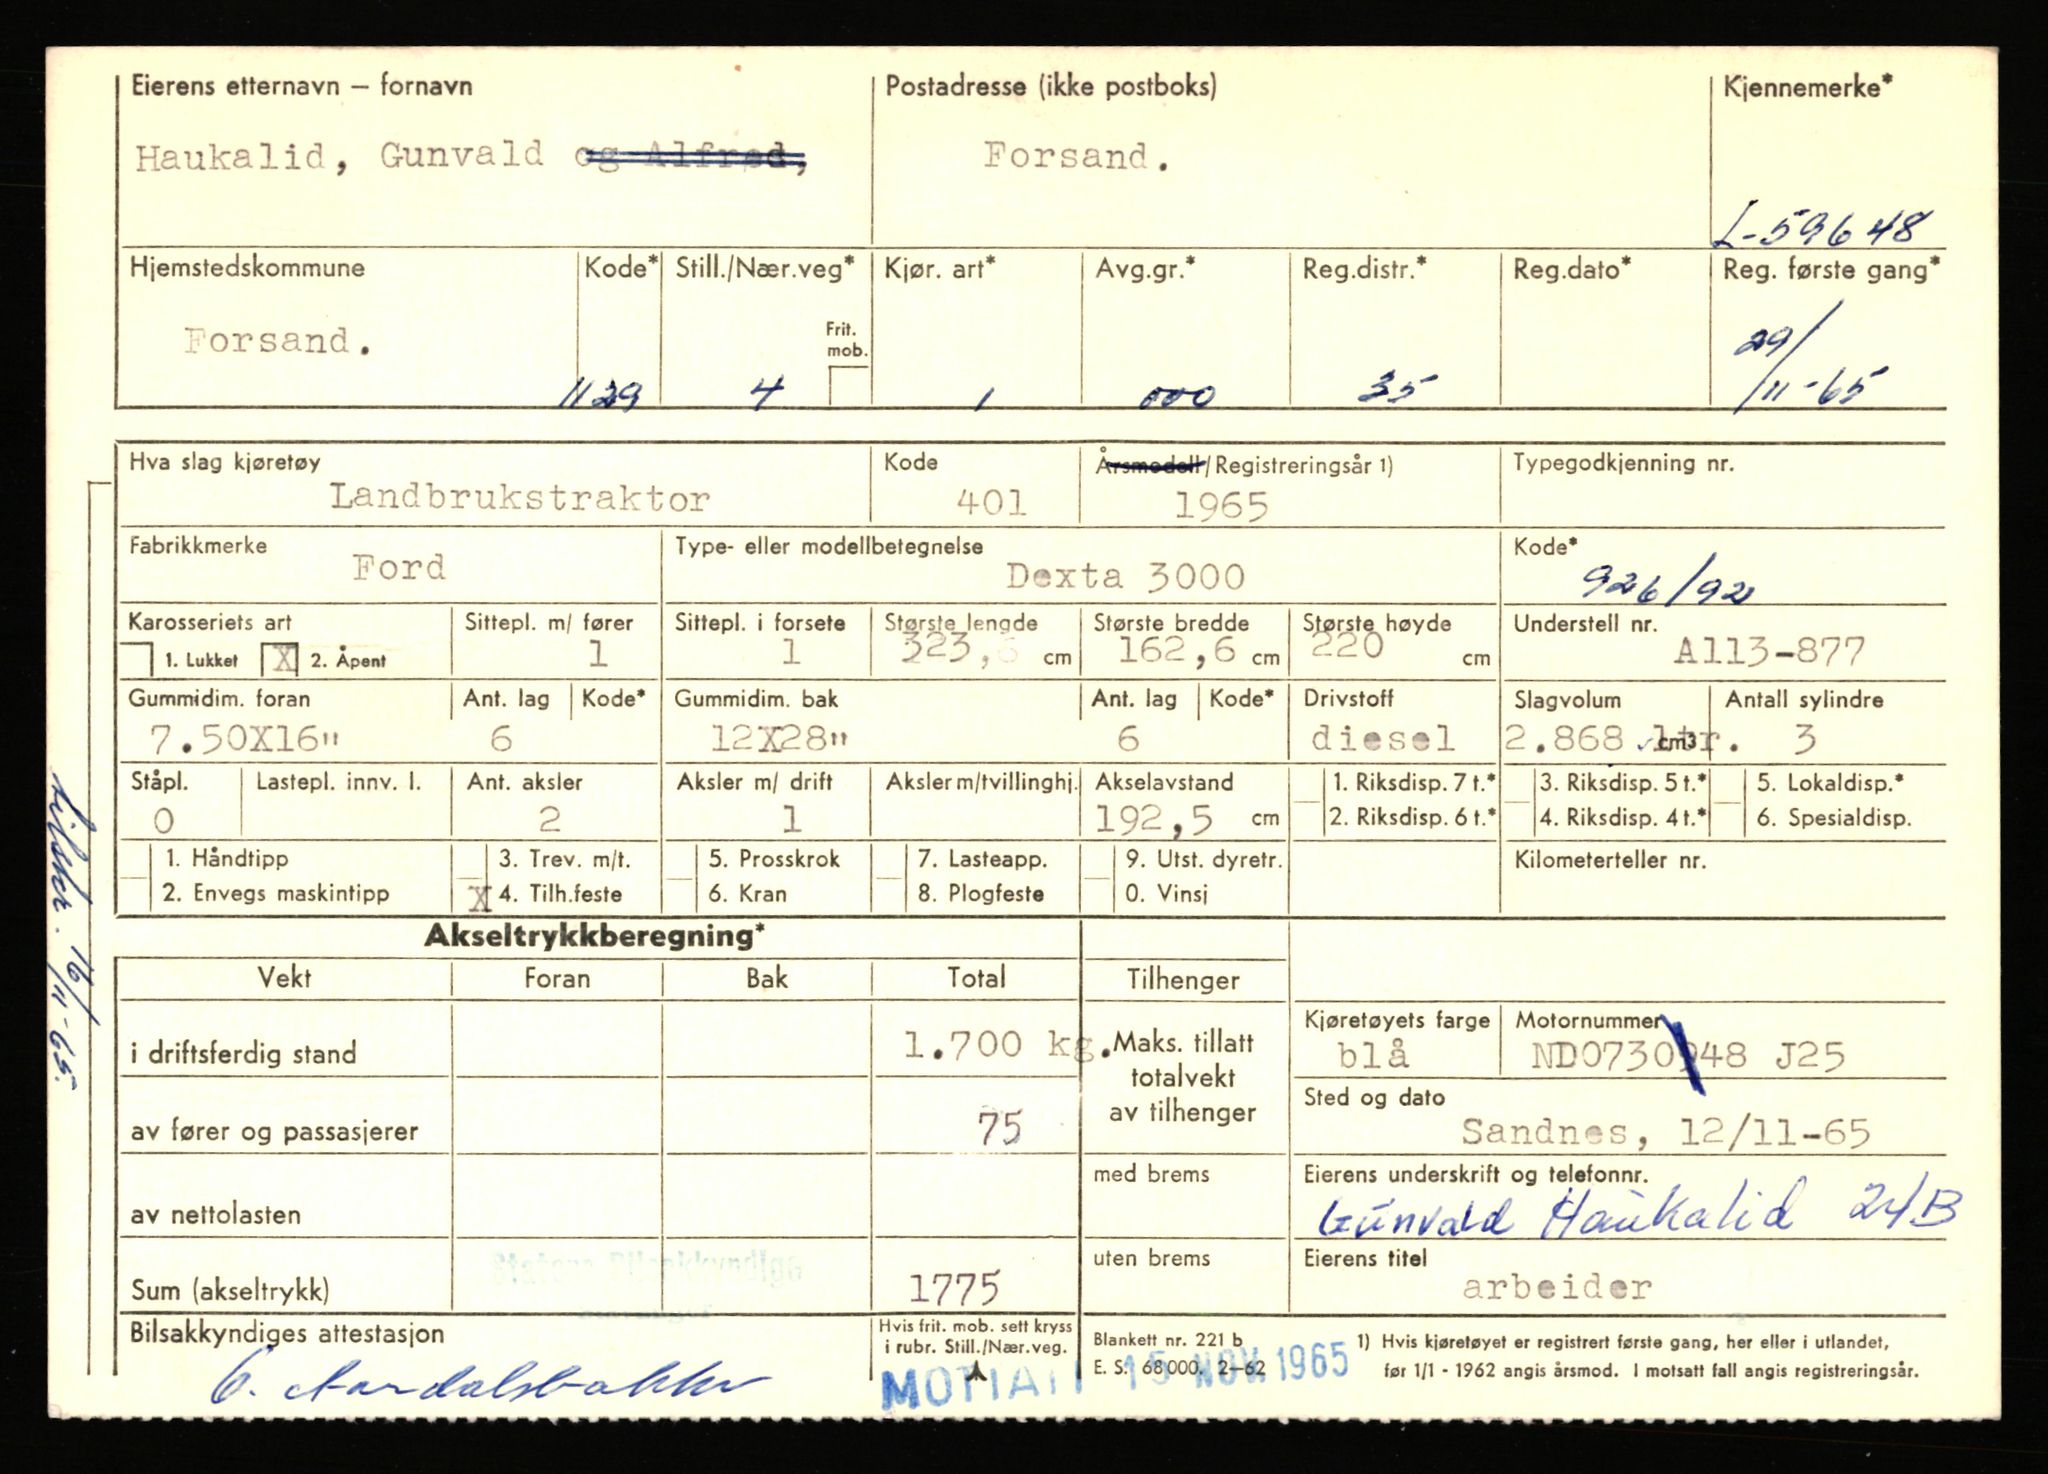 Eierens etternavn – fornavn Postadresse (ikke postboks) Kjennemerke*
Haukalid, Gunvald og Alfred, Forsand.
L-59648
Hjemstedskommune Kode* Still./Nær.veg* Kjør. art* Avg.gr.* Reg.distr.* Reg.dato* Reg. første gang*
Forsand. Frit. mob. 29/11-65
1129 4 1 000 35
Hva slag kjøretøy Kode Årsmodell/Registreringsår 1) Typegodkjenning nr.
Landbrukstraktor 401 1965
Fabrikkmerke Type- eller modellbetegnelse Kode*
Ford Dexta 3000 926/92
Karosseriets art Sittepl. m/ fører Sittepl. i forsete Største lengde Største bredde Største høyde Understell nr.
1. Lukket X 2. Åpent 1 1 323,6 cm 162,6 cm 220 cm A113-877
Gummidim. foran Ant. lag Kode* Gummidim. bak Ant. lag Kode* Drivstoff Slagvolum Antall sylindre
7.50X16" 6 12X28" 6 diesel 2.868 cm3 ltr. 3
Ståpl. Lastepl. innv. l. Ant. aksler Aksler m/ drift Aksler m/tvillinghj. Akselavstand 1. Riksdisp. 7 t.* 3. Riksdisp. 5 t.* 5. Lokaldisp.*
0 2 1 192,5 cm 2. Riksdisp. 6 t.* 4. Riksdisp. 4 t.* 6. Spesialdisp.
1. Håndtipp 3. Trev. m/t. 5. Prosskrok 7. Lasteapp. 9. Utst. dyretr. Kilometerteller nr.
2. Envegs maskintipp X 4. Tilh.feste 6. Kran 8. Plogfeste 0. Vinsj
Akseltrykkberegning*
Vekt Foran Bak Total Tilhenger
i driftsferdig stand 1.700 kg. Maks. tillatt totalvekt av tilhenger
Kjøretøyets farge Motornummer
blå ND0730948 J25
av fører og passasjerer 75
Sted og dato
Sandnes, 12/11-65
av nettolasten med brems
Eierens underskrift og telefonnr.
Gunvald Haukalid 24B
Statens Bilsakkyndige
Sum (akseltrykk) 1775 uten brems
Eierens titel
arbeider
Bilsakkyndiges attestasjon Hvis frit. mob. sett kryss i rubr. Still./Nær.veg.
Blankett nr. 221 b
E. S. 68 000. 2–62
1) Hvis kjøretøyet er registrert første gang, her eller i utlandet,
før 1/1 - 1962 angis årsmod. I motsatt fall angis registreringsår.
MOTTATT 15 NOV. 1965
16/11-65.